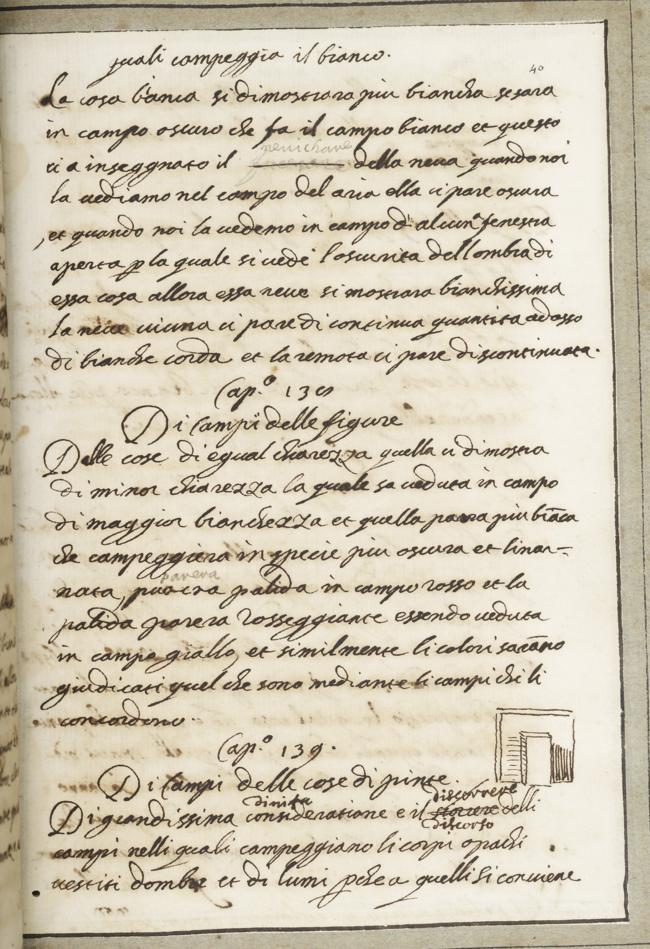 quali campeggia il bianco.
40
La cosa bianca si dimostrara piu biancha se sara
in campo oscuro che fa il campo bianco et questo
ci a inseggnato il della neva quando noi
la vediamo nel campo del aria ella ci pare oscura
et quando noi la vedemo in campo d'alcuna fenestra
aperta p la quale si vede l'oscurita dell ombra di
essa cosa allora essa neve si mostrara bianchissima
la neve vicina ci pare di continua quantita adosso
di bianche corda et la remota ci pare discontinuata.
Cap.º 138
Di Campi delle figure
Delle cose di egual chiarezza quella ci dimostra
di minor chiarezza la quale sa veduta in campo
di maggior bianchezza et quella parra piu biãca
che campeggiera in specie piu oscura et l'incar=
parera
nata, palida in campo rosso et la
palida parera rosseggiante essendo veduta
in campo giallo, et similmente li colori sarãno
giudicati quel che sono mediante li campi chi li
concordono.
Cap.º 139.
Di Campi delle cose di pinte.
discorrere
dinita
Di grandissima consideratione e il storere delli
discorso
campi nelli quali campeggiano li corpi opachi
vestiti dombre et di lumi pche a quelli si conviene